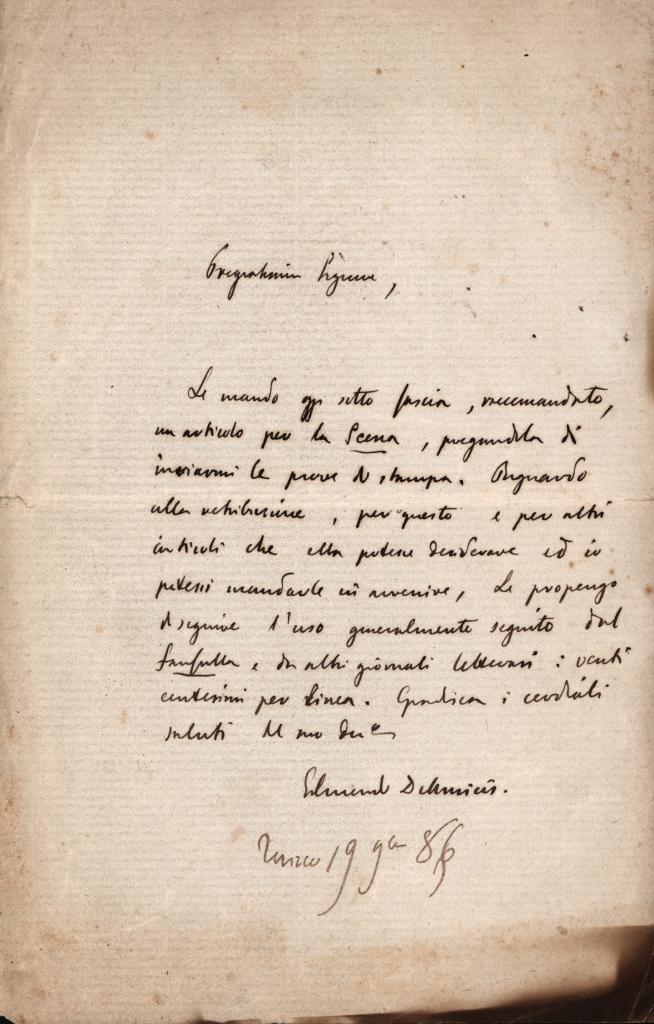 Pregiatissimo Signore,
Le mando oggi sotto fascia, raccomandato,
un articolo per la Scena, pregandola di
inviarmi le prove di stampa. Riguardo
alla retribuzione, per questo e per altri
articoli che ella potesse desiderare ed io
potessi mandarle in avvenire, Le propongo
di seguire l'uso generalmente seguito dal
Fanfulla e da altri giornali letterari: venti
centesimi per linea. Gradisca i cordiali
saluti del suo dev
Edmondo De Amicis.
Torino 19 9bre 86